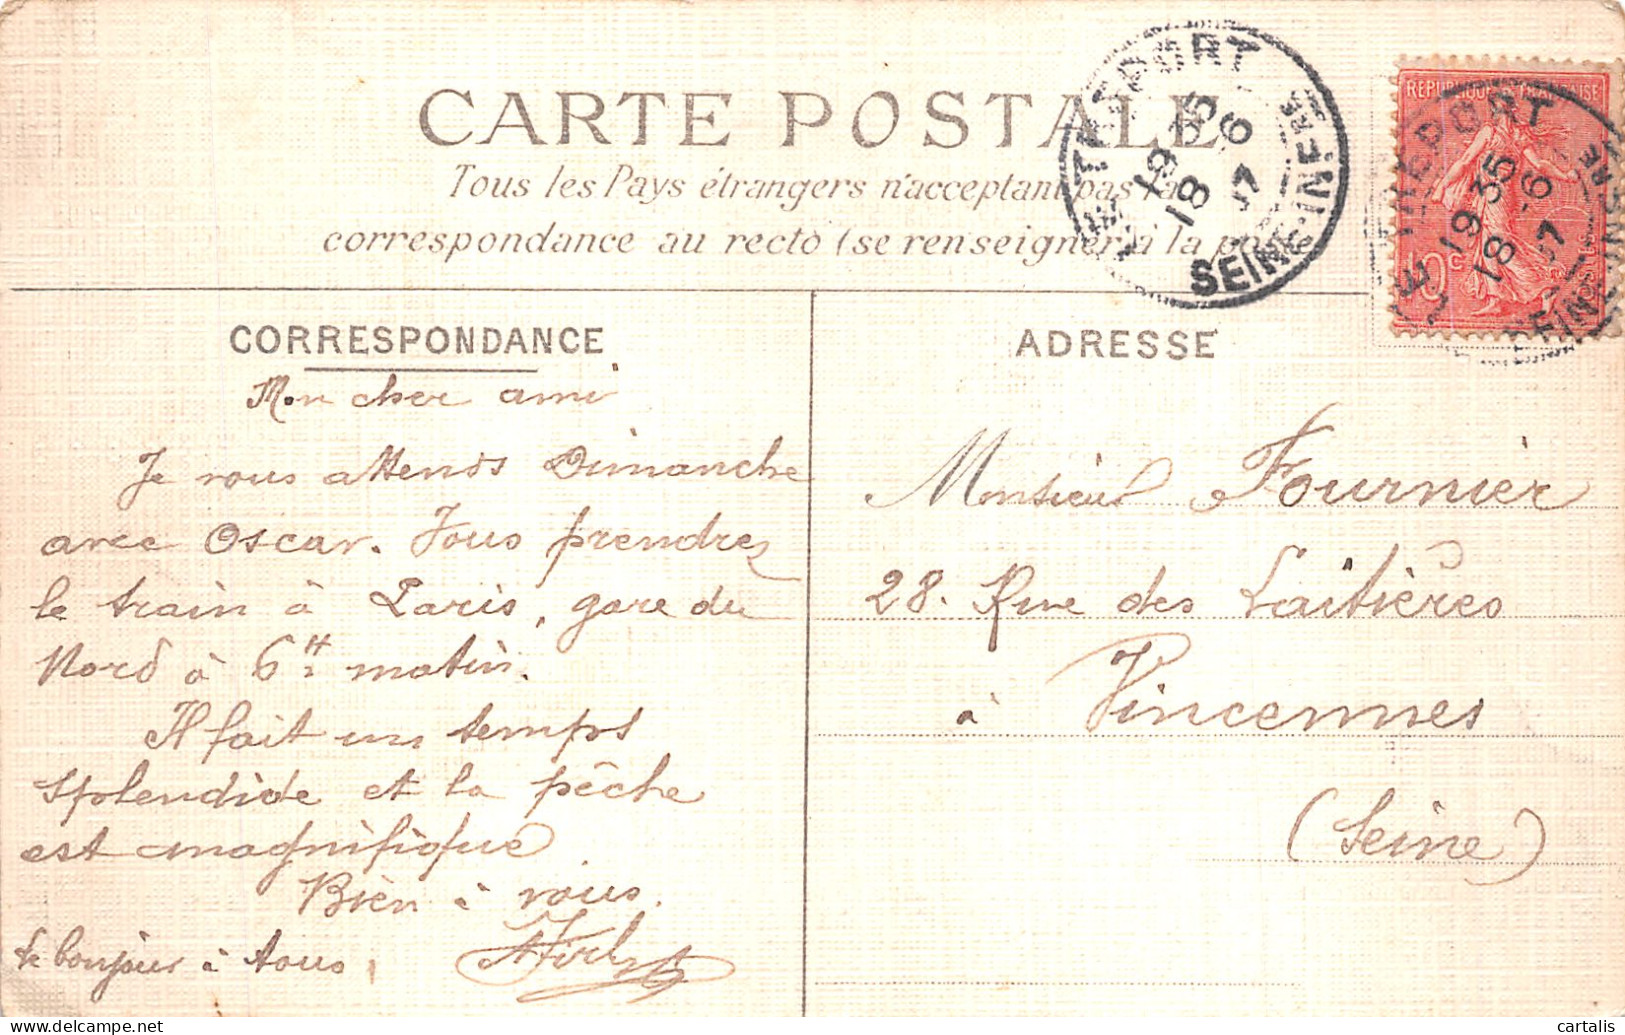 CARTE POSTALE
Tous les Pays étrangers n'acceptant pas la
correspondance au recto (se renseigner à la poste)
LE TRÉPORT
19 35
18 -6
07
SEINE-INFÉRE
REPUBLIQUE FRANÇAISE
10c
LE TRÉPORT
19 35
18 -6
07
SEINE-INFÉRE
CORRESPONDANCE
Mon cher ami
Je vous attends Dimanche
avec Oscar. Vous prendrez
le train à Paris, gare du
Nord à 6H matin.
Il fait un temps
splendide et la pêche
est magnifique.
Bien à vous.
Le bonjour à tous.
ADRESSE
Monsieur Fournier
28. Rue des Laitières
à Vincennes
(Seine)
cartalis